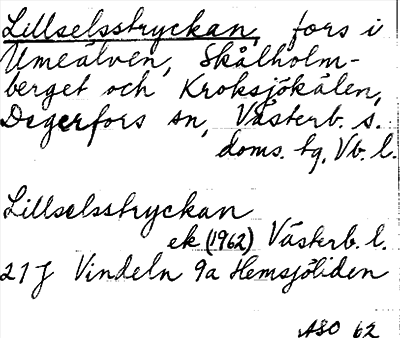 Lillselsstryckan, fors i
Umeälven, Skålholm-
berget och Kroksjökälen,
Degerfors sn, Västerb. s.
doms. tg, Vb. l.
Lillselsstryckan
ek (1962) Västerb. l.
21 J Vindeln 9a Hemsjöliden
ASO 62